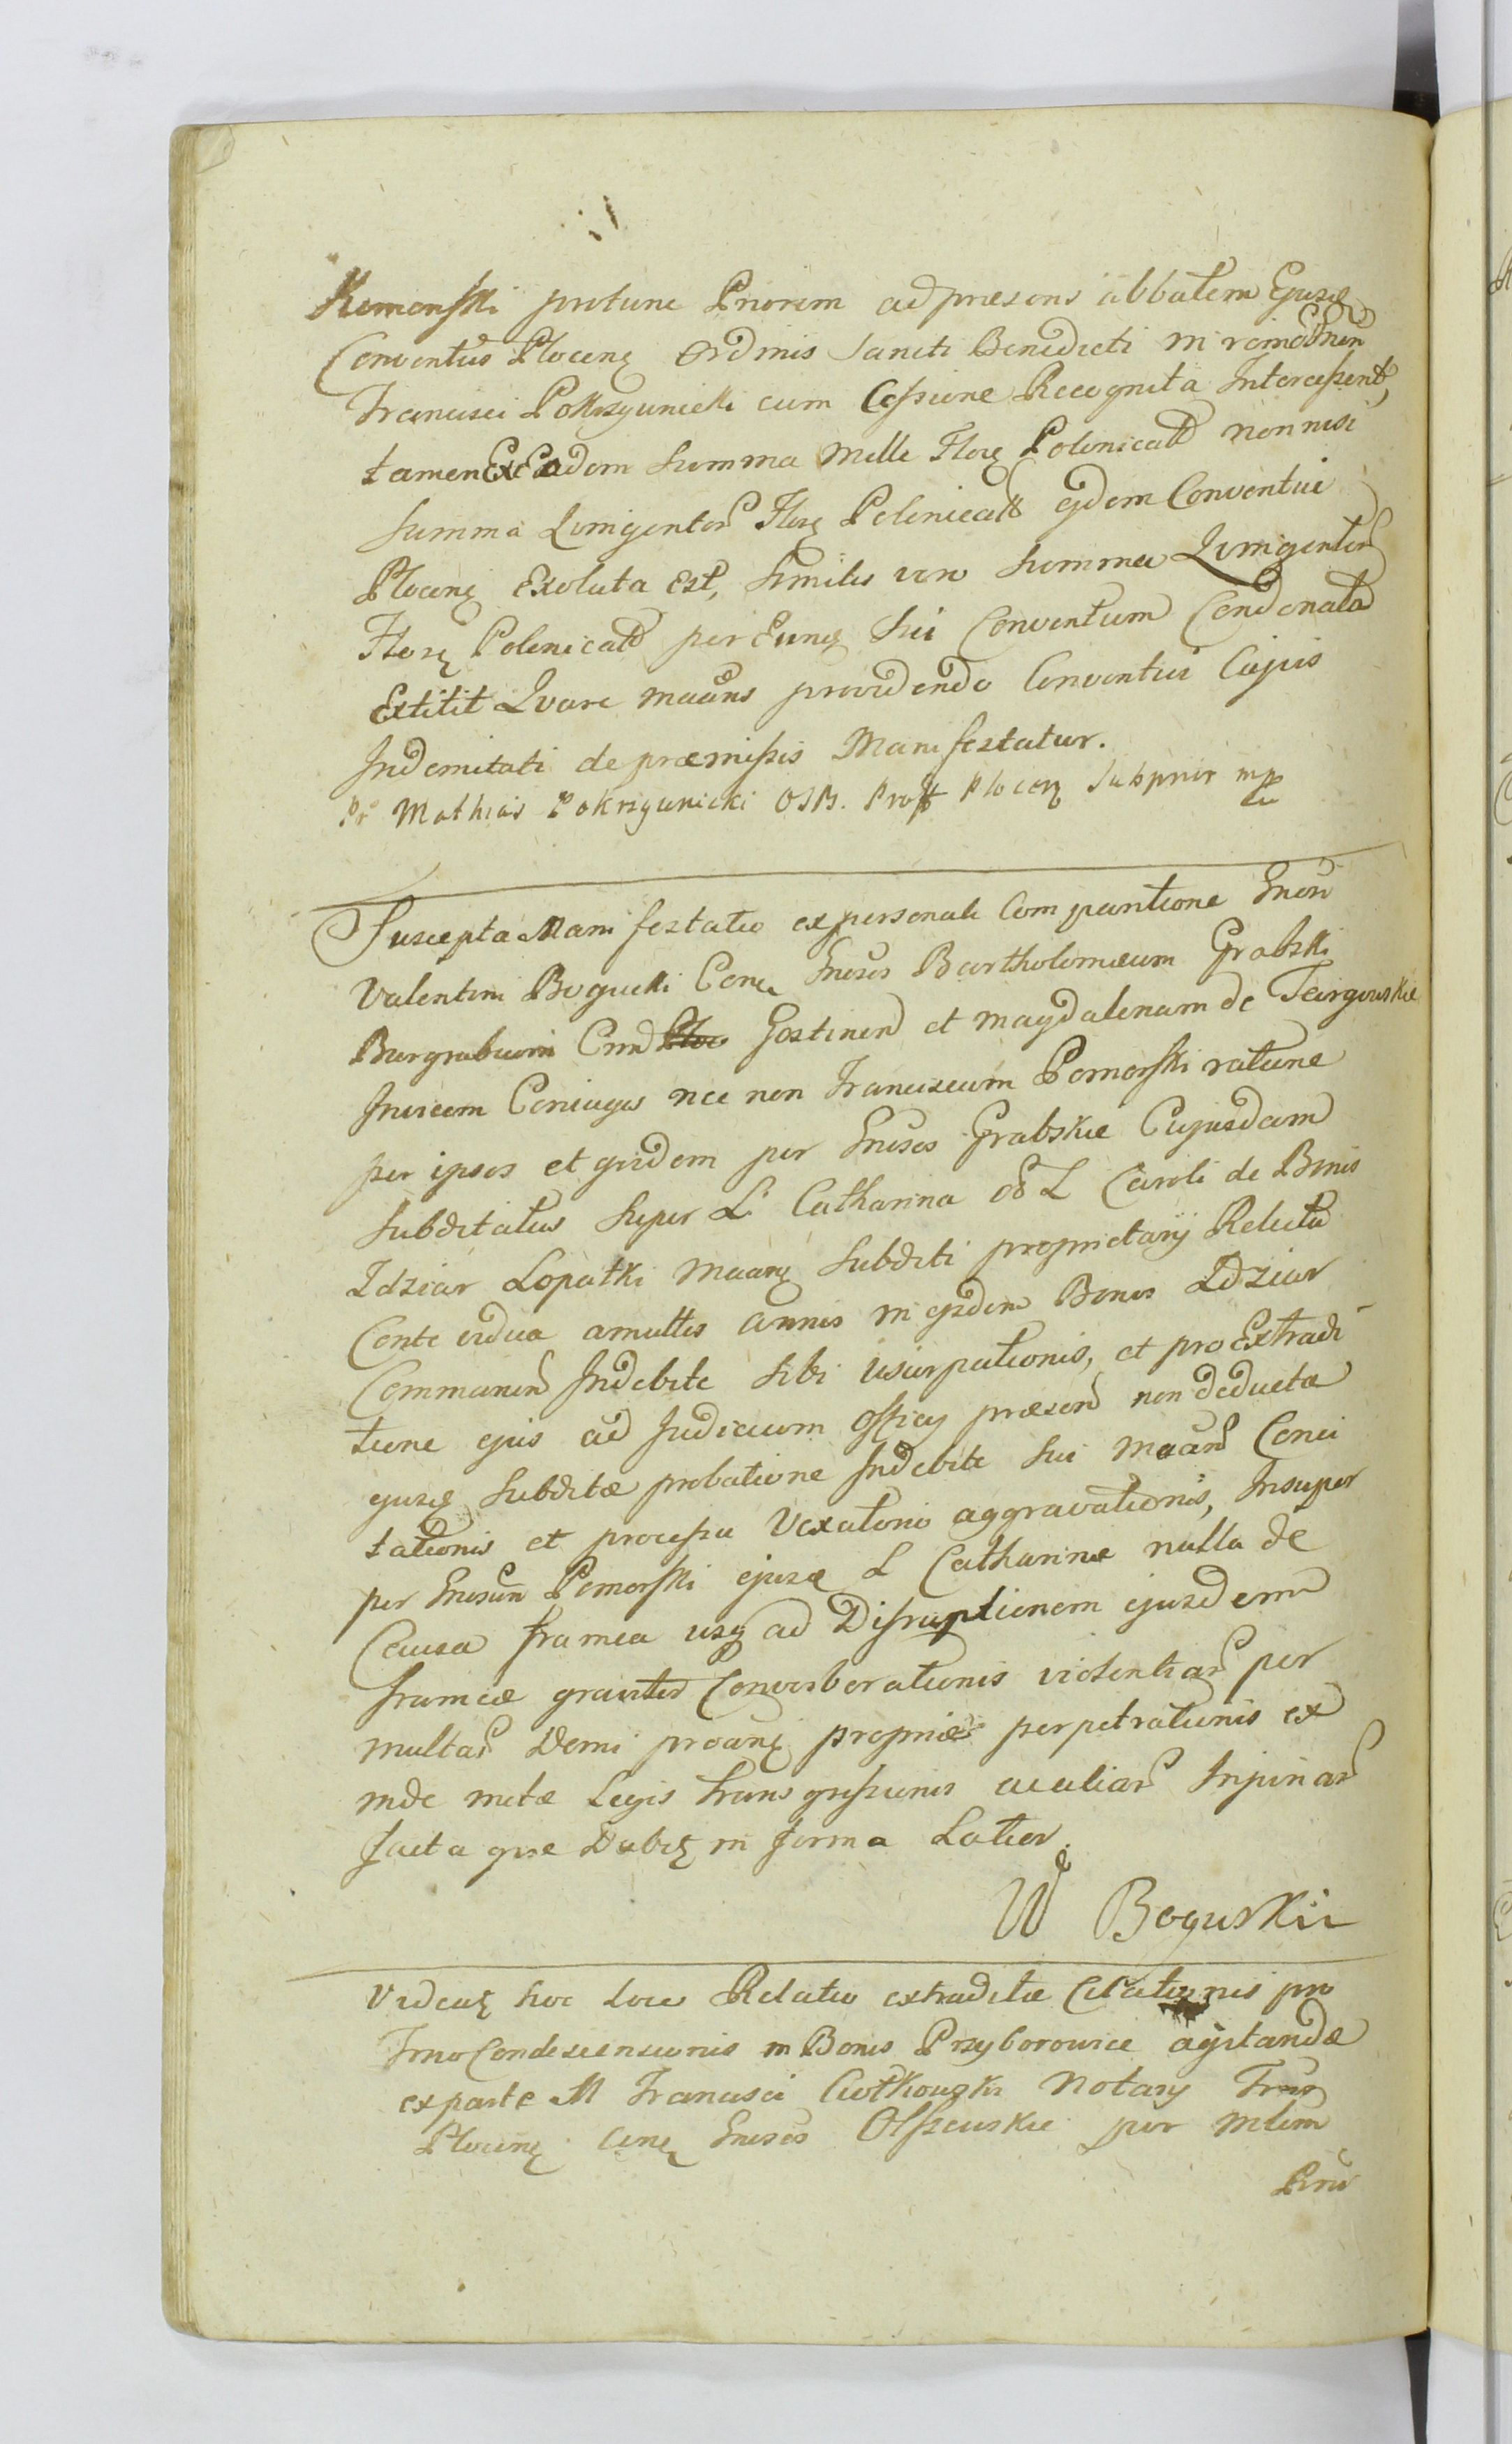 Komorski protunc Priorem ad praesens abbatem Ejusq
Conventus Plocenę Ordinis Sancti Benedicti in rem Gnen
Francisci Pokrzywnicki cum Cessione Recognita Intercessent,
tamen Ex Eadem Summa Mille Florę Polonicalt non nisi
Summa Quingentor Florę Polonicalt ejdem Conventui
Plocenę Exoluta est, Similis vero Summa Quingentor
Florę Polonicalt per Eunę Sui Conventum Condonata
Extitit Quare maans providendo Conventui Cujus
Indemitati de praemissis Manifestatur.
Pr Mathias Pokrzywnicki OSB. Proff Plocen Subprior mp
Suscepta Manifestatio ex personali Comparitione Gnen
Valentini Bogucki Conę Gnesos Bartholomaeum Grabski
Burgrabium Cnn Gostinen et Magdalenam de Targowskie
Invicem Coniuges nec non Franciscum Pomorski ratione
per ipsos et quidem per Gnesos Grabskie Cujusdam
Subditatus Super L. Catharina ol L Caroli de Bonis
Idziar Lopatki Maanę Subditi proprietarij Relicta
Conte vidua a multis annis in ejsdem Bonis Idziar
Commanen Indebite Sibi usurpationis, et pro Extradi
tione ejus ad Judicium Officij praesen non deducta
ejusę Subditae probatione Indebite Sui Maan Conci
tationis et processu Vexatorio aggravationis, Insuper
per Gnesum Pomorski ejusę L Catharinae nulla de
Causa framea usq ad Disruptionem ejusdem
frameae graviter Converberationis violentiar per
multar Domi proanę propriae perpetrationis ex
inde metae Legis transgressionis aliar Injuriar
facta que Dabię in forma Latior.
W Boguski
Videaę hoc loco Relatio extraditae Citationis pro
Trno Condescensionis in Bonis Przyborowice agitandae
ex parte M Francisci Ciotkowski Notarij Trrs
Plocenę Conę Gnesos Olszewskie per Mlem